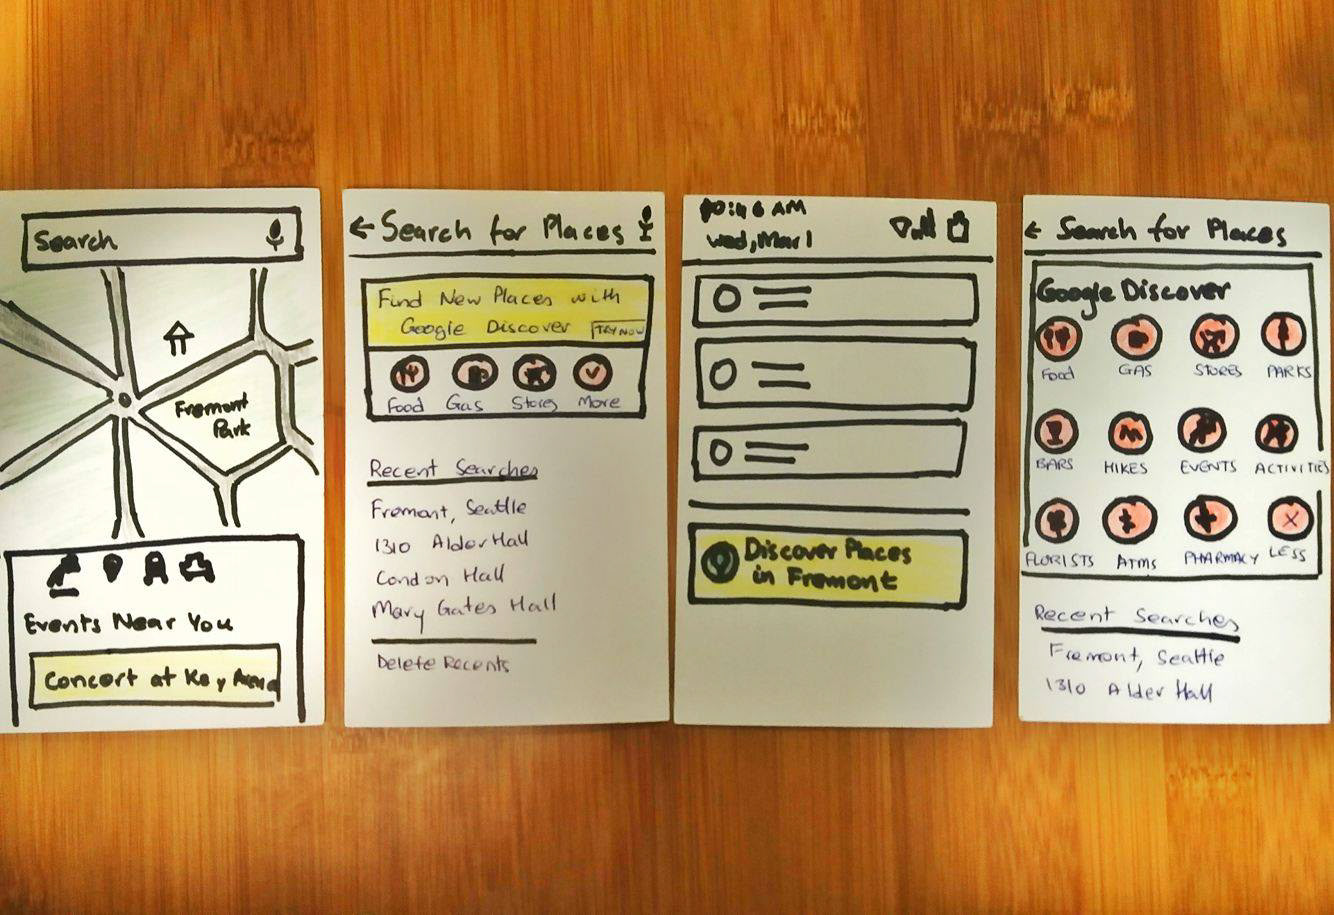 Search
Fremont
Park
Events Near You
Concert at Key Arena
← Search for Places
Find New Places with
Google Discover
TRY NOW
Food Gas Stores More
Recent Searches
Fremont, Seattle
1310 Alder Hall
Condon Hall
Mary Gates Hall
Delete Recents
10:46 AM
Wed, Mar 1
Discover Places
in Fremont
← Search for Places
Google Discover
Food GAS STORES PARKS
BARS HIKES EVENTS ACTIVITIES
FLORISTS ATMS PHARMACY LESS
Recent Searches
Fremont, Seattle
1310 Alder Hall